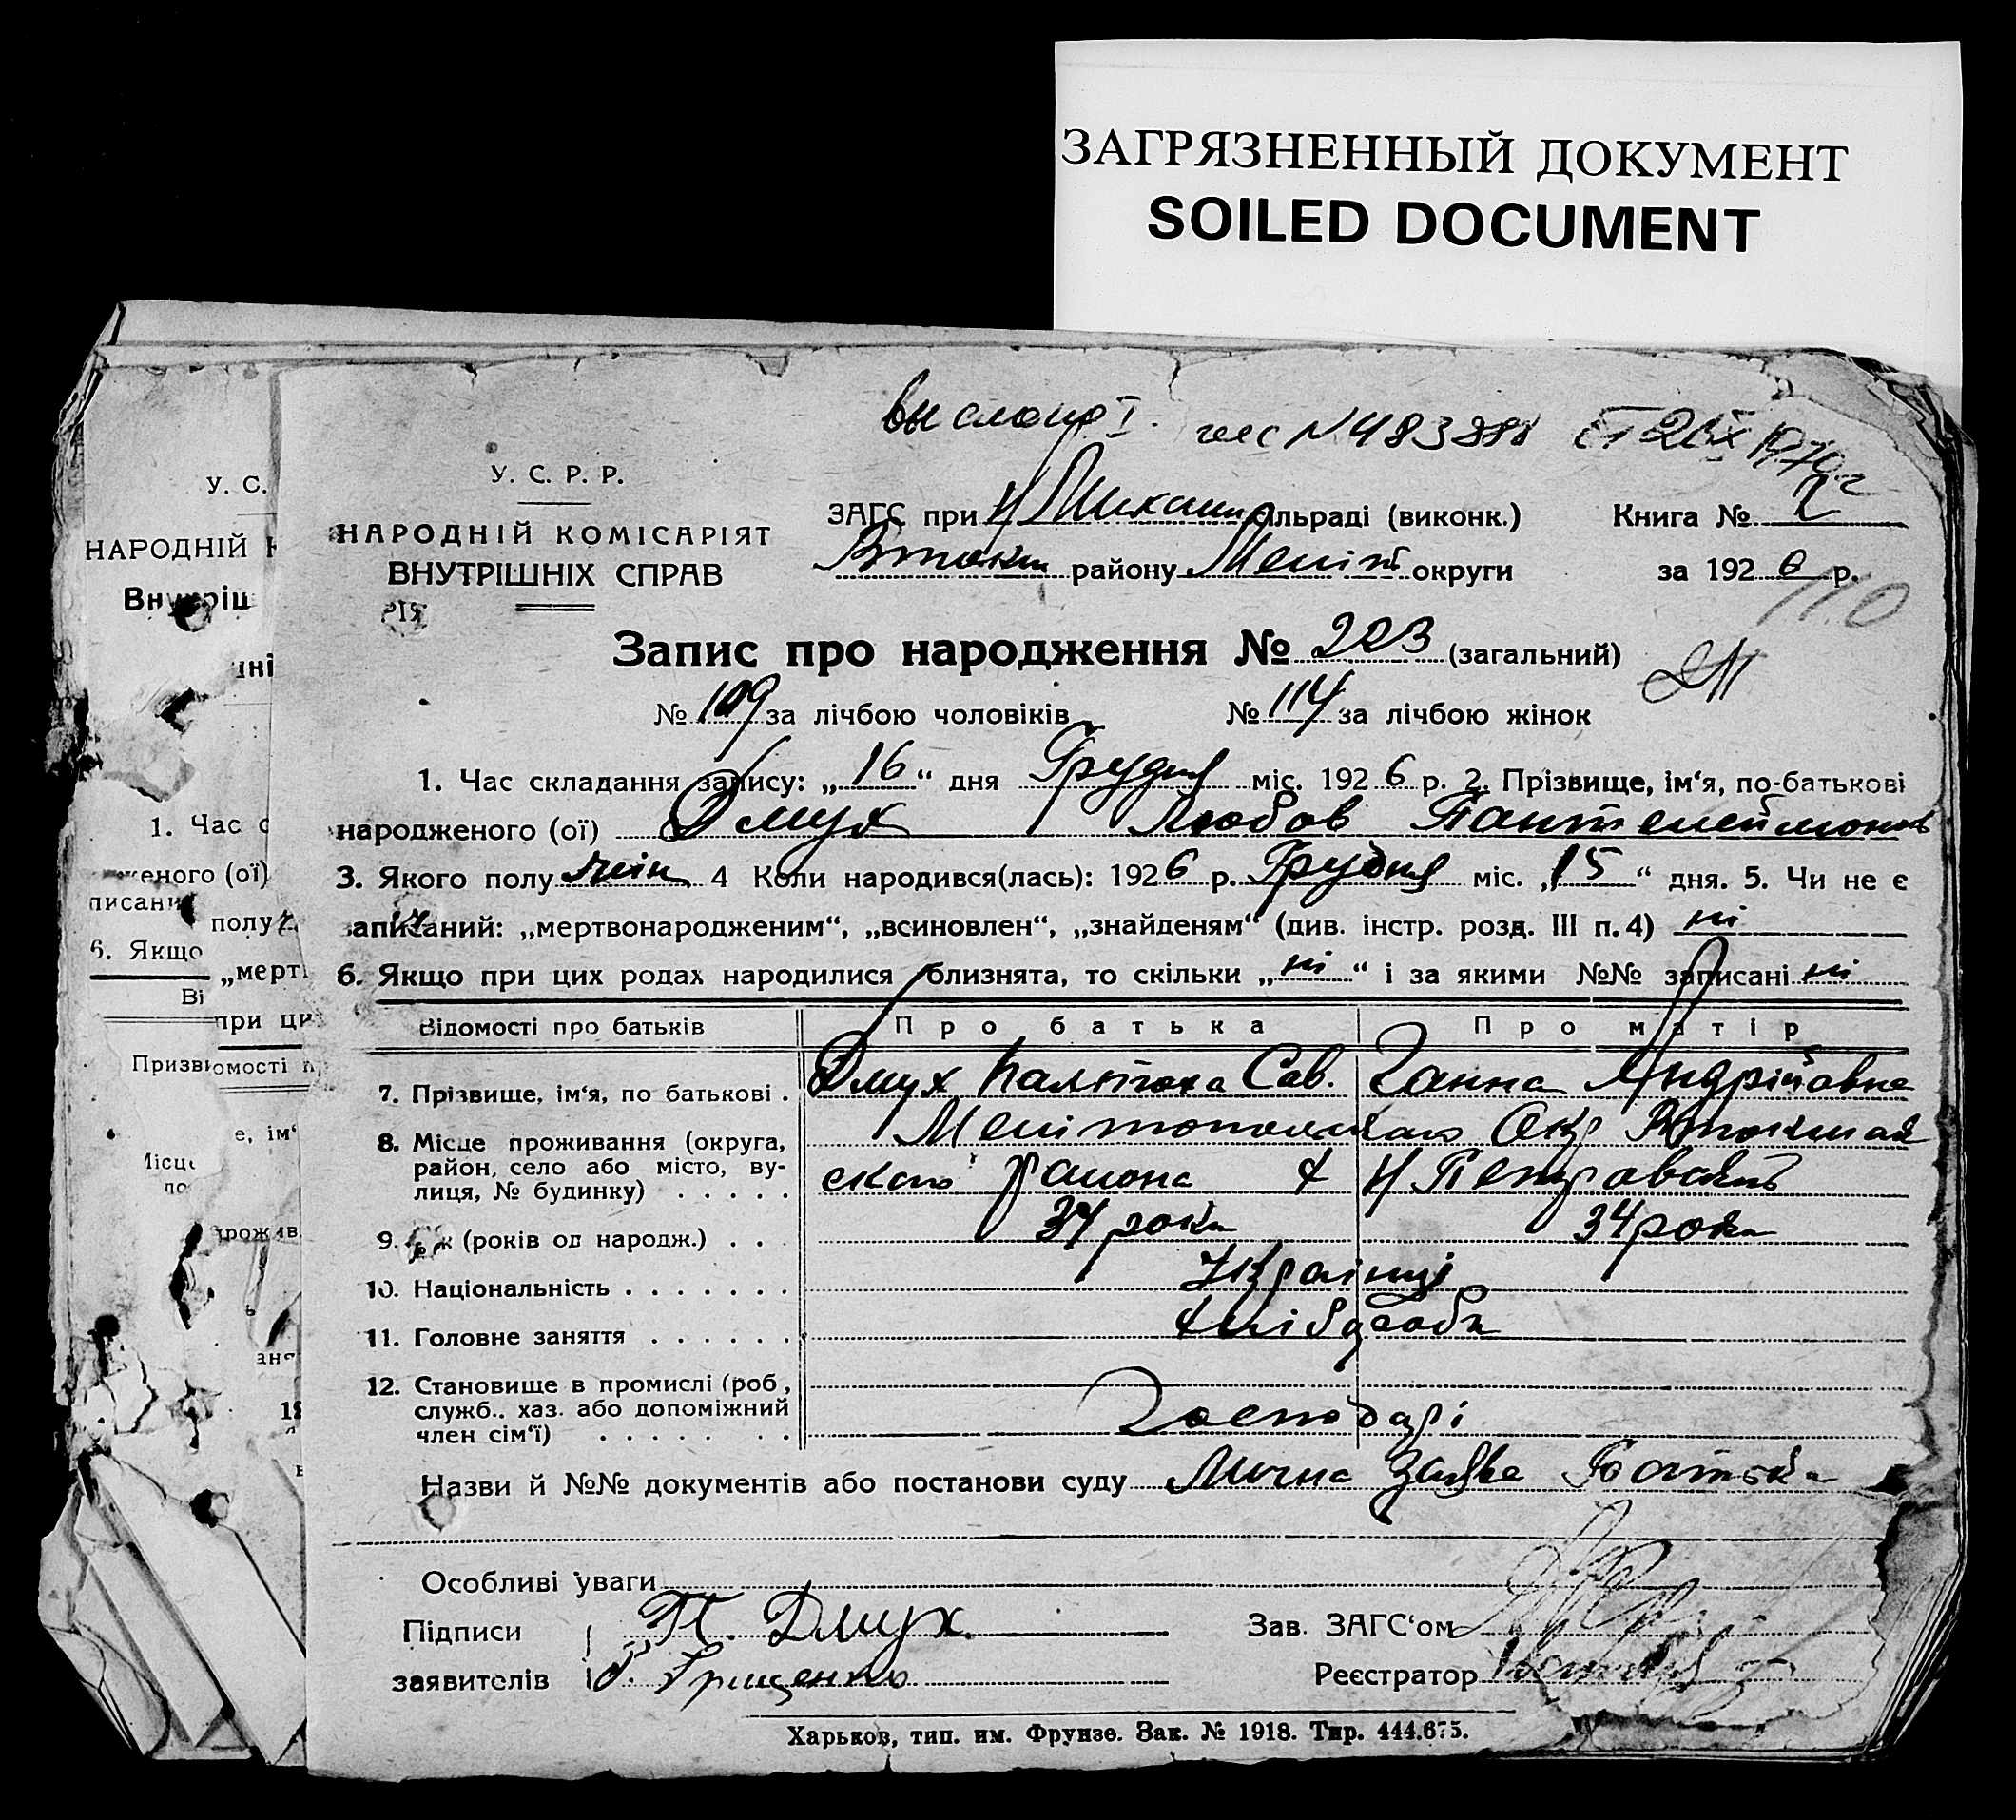 ЗАГРЯЗНЕННЫЙ ДОКУМЕНТ
SOILED DOCUMENT
У. С. Р. Р.
НАРОДНІЙ КОМІСАРІЯТ
ВНУТРІШНІХ СПРАВ
ЗАГС при сільраді (виконк.) Книга № 2
району Меліт округи за 1926 р.
110
Запис про народження № 203 (загальний)
№ 109 за лічбою чоловіків № 114 за лічбою жінок
1. Час складання запису: „16“ дня Грудня міс. 1926 р. 2. Прізвище, ім‘я, по-батькові
народженого (ої) Дмух Любов Пантелеймонов
3. Якого полу жін 4 Коли народився(лась): 1926 р. Грудня міс. „15“ дня. 5. Чи не є
записаний: „мертвонародженим“, „всиновлен“, „знайденям“ (див. інстр. розд. III п. 4) ні
6. Якщо при цих родах народилися близнята, то скільки „ні“ і за якими №№ записані ні
Відомості про батьків Про батька Про матір
7. Прізвище, ім‘я, по батькові . Дмух Сав. Ганна Андрійовна
8. Місце проживання (округа, район, село або місто, вулиця, № будинку) . . . . . Окр
района
9. (років од народж.) . . . 34 роки 34 роки
10. Національність . . . . . . . Українці
11. Головне заняття . . . . . . Хліборобы
12. Становище в промислі (роб., служб., хаз. або допоміжний член сім‘ї) . . . . . . . Господарі
Назви й №№ документів або постанови суду Лична Заява Батька
Особливі уваги
Підписи П. Дмух. Зав. ЗАГС‘ом
заявителів Грищенко Реєстратор
Харьков, тип. им. Фрунзе. Зак. № 1918. Тир. 444.675.